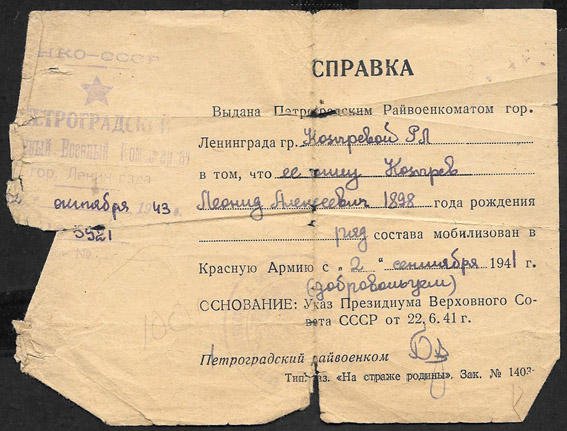 НКО–СССР
ПЕТРОГРАДСКИЙ
Военный
гор. Ленинграда
октября 43
5921
№
СПРАВКА
Выдана Петроградским Райвоенкоматом гор.
Ленинграда гр. Козыревой Р Л
в том, что ее Козырев
Леонид Алексеевич 1898 года рождения
ряд состава мобилизован в
Красную Армию с „2" сентября 1941 г.
(добровольцем)
ОСНОВАНИЕ: Указ Президиума Верховного Со-
вета СССР от 22.6.41 г.
Петроградский райвоенком
Тип. газ. „На страже родины". Зак. № 1403-